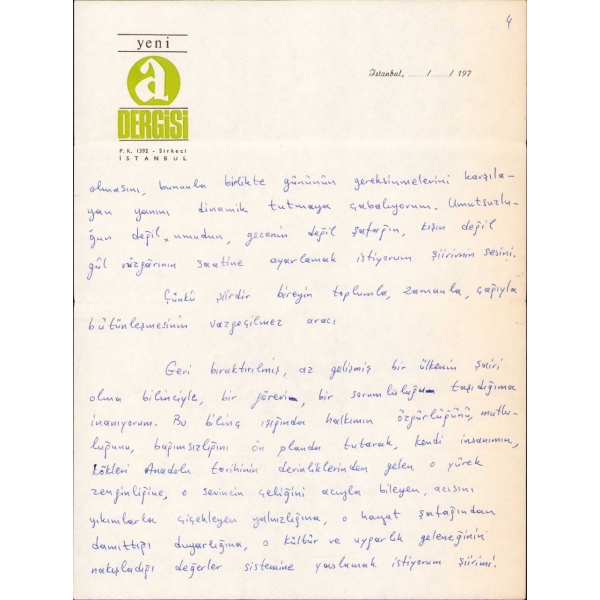 4
yeni
a
DERGİSİ
P. K. 1392 - Sirkeci
İSTANBUL
İstanbul, ...... / ...... / 197
olmasını, bununla birlikte gününün gereksinmelerini karşıla-
yan yanını dinamik tutmaya çabalıyorum. Umutsuzlu-
ğun değil, umudun, gecenin değil şafağın, kışın değil
gül rüzgârının saatine ayarlamak istiyorum şiirimin sesini.
Çünkü şiirdir bireyin toplumla, zamanla, çağıyla
bütünleşmesinin vazgeçilmez aracı
Geri bıraktırılmış, az gelişmiş bir ülkenin şairi
olma bilinciyle, bir görevin, bir sorumluluğun taşıdığıma
inanıyorum. Bu bilinç ışığında halkımın özgürlüğünü, mutlu-
luğunu, bağımsızlığını ön planda tutarak, kendi insanımın,
kökleri Anadolu tarihinin derinliklerinden gelen o yürek
zenginliğine, o sevincin çeliğini acıyla bileyen, acısını
yıkımlarla çiçekleyen yalnızlığına, o hayat şafağından
damıttığı duyarlığına, o kültür ve uygarlık geleneğinin
nakışladığı değerler sistemine yaslamak istiyorum şiirimi.